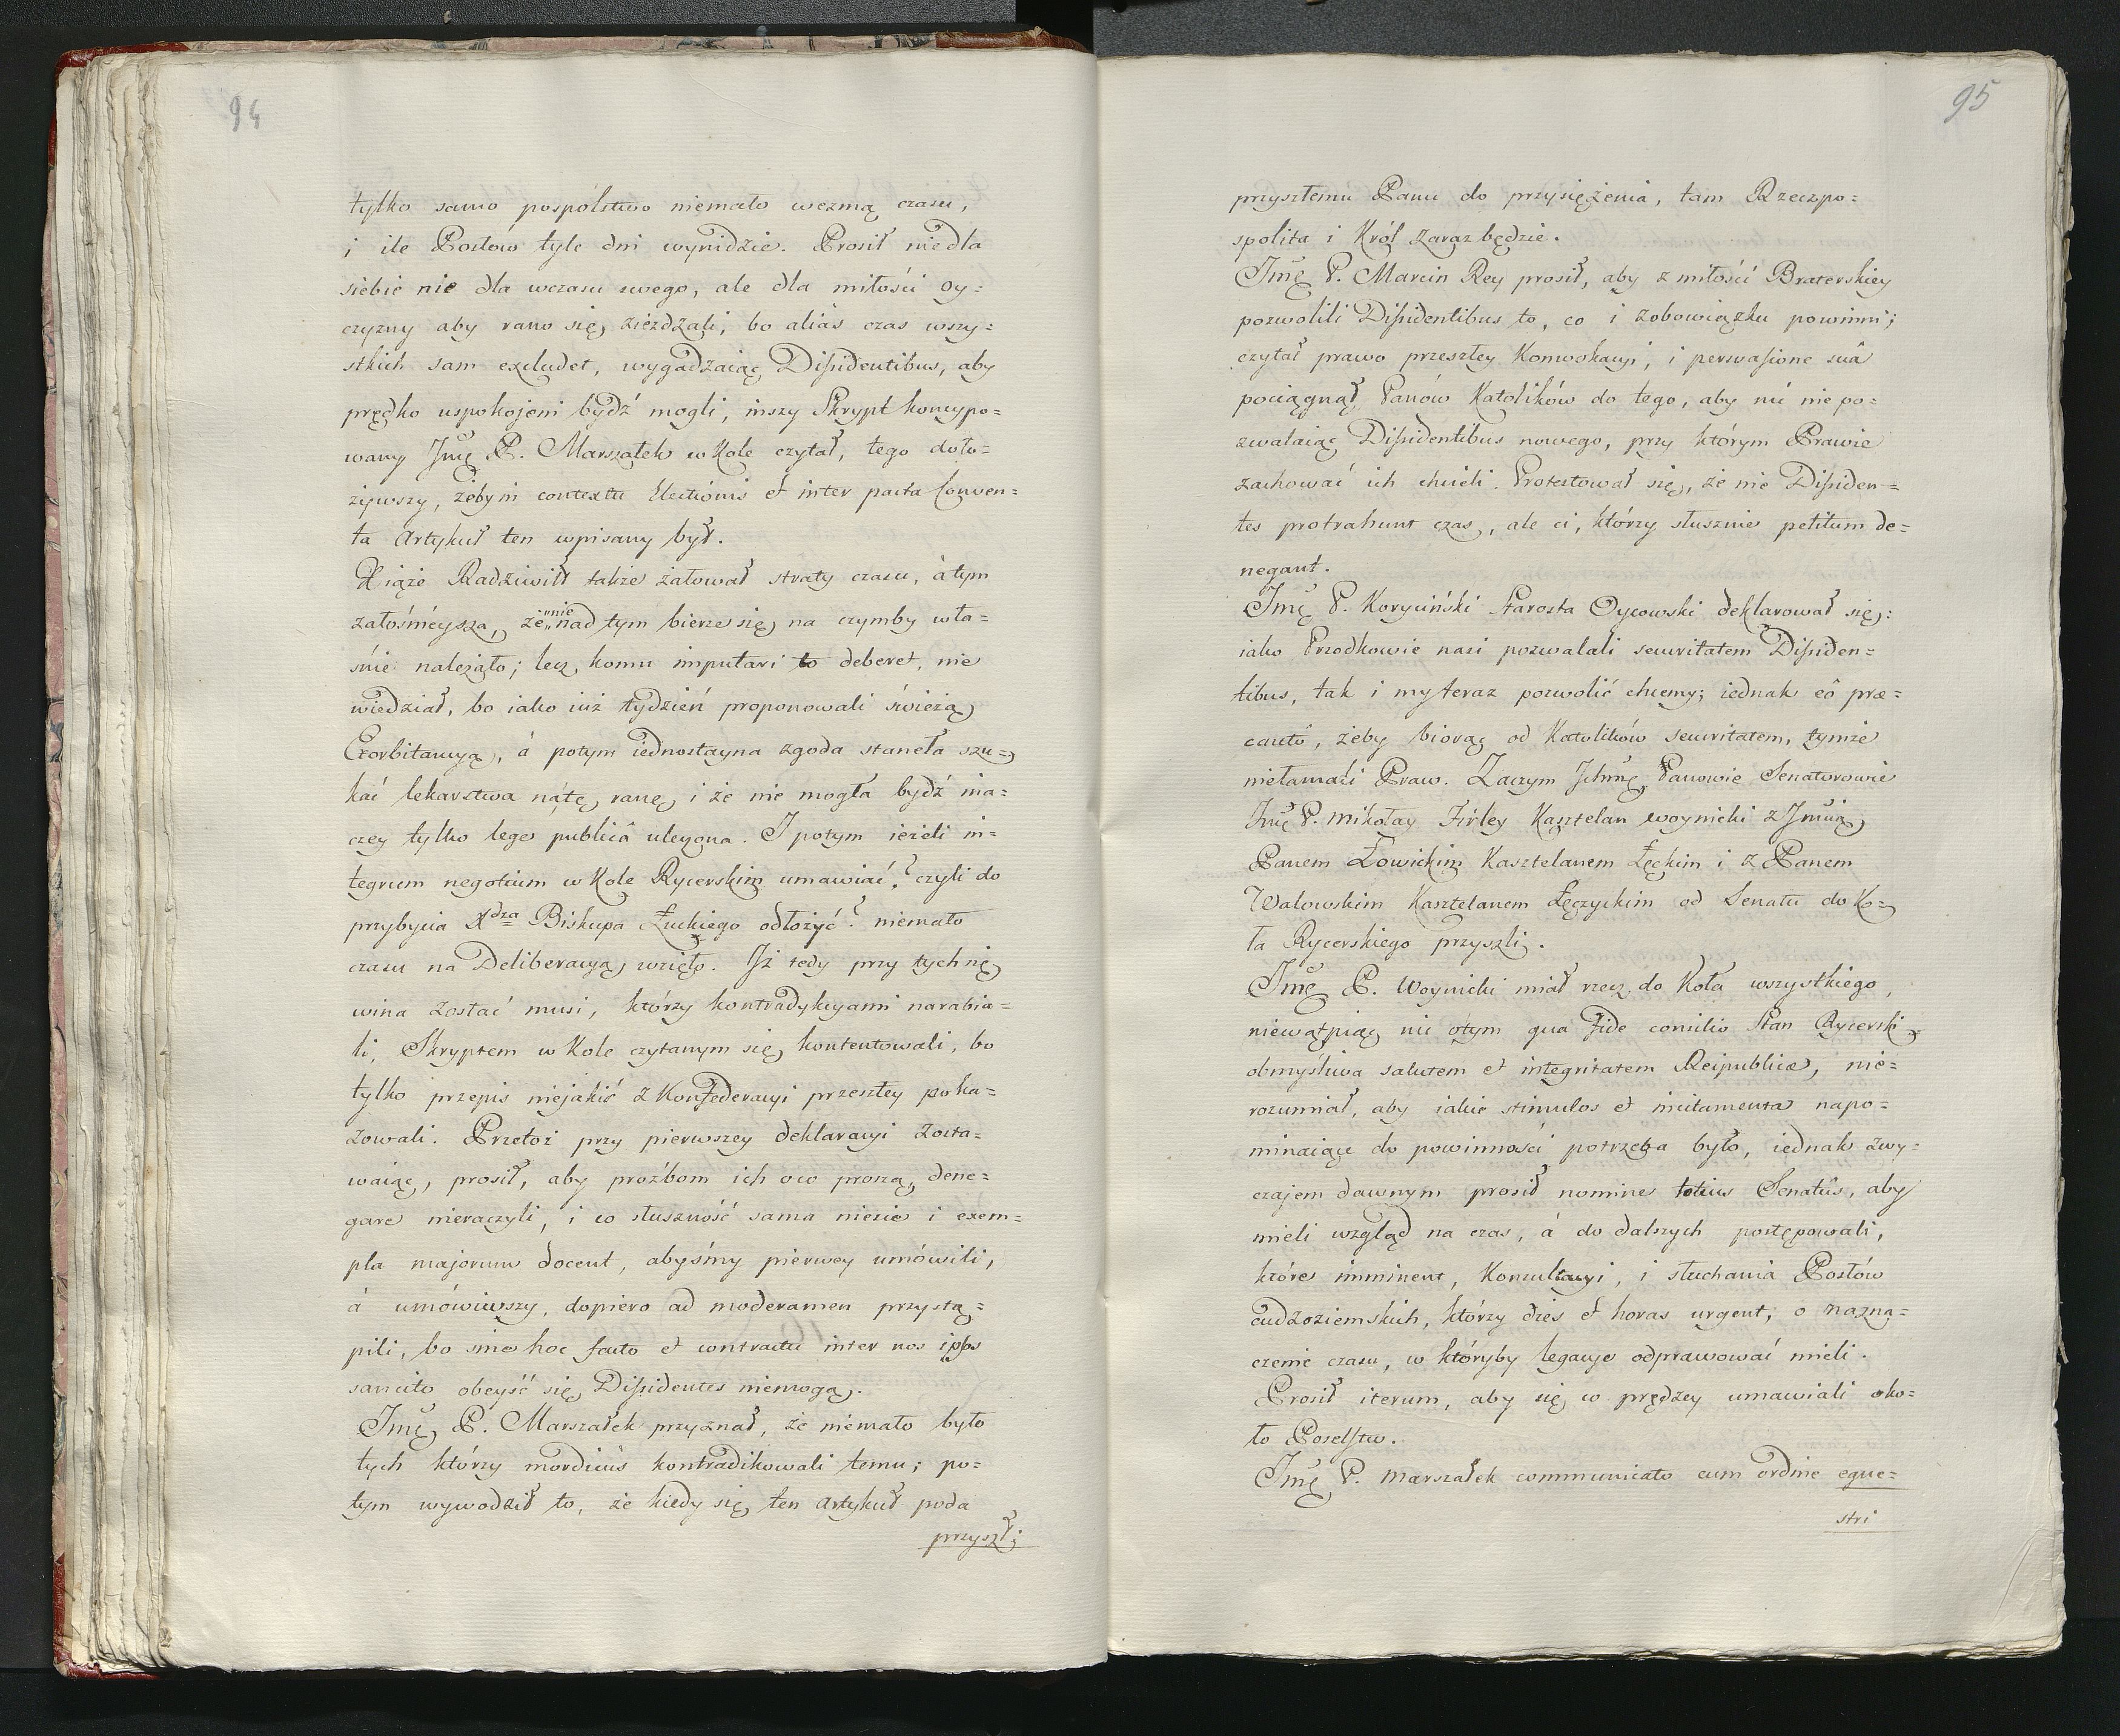 94
tylko samo pospólstwo niemało wezmą czasu,
i ile Posłow tyle dni wynidzie. Prosił nie dla
siebie nie dla wczasu swego, ale dla miłości Oy=
czyzny aby rano się zieżdzali, bo alias czas wszy=
stkich sam excludet, wygadzaiąc Dissidentibus, aby
prędko uspokojeni bydź mogli, inszy Skrypt koncypo=
wany Jmć P. Marszałek w Kole czytał, tego doło=
żywszy, żeby in contextu Electionis et inter pacta Conven=
ta Artykuł ten wpisany był.
Xiąże Radziwiłł także żałował straty czasu, á tym
żałośnieysza, że nie nad tym bierze się na czymby wła=
śnie należało; lecz komu imputari to deberet, nie
wiedział, bo iako iuż tydzień proponowali świeżą
Exorbitancyą, á potym iednostayna zgoda staneła szu=
kać lekarstwa ná tę ranę, i że nie mogła bydź ina=
czey tylko lege publicâ uleczona. I potym ieżeli in=
tegrum negotium w Kole Rycerskim umawiać? czyli do
przybycia Xdza Biskupa Łuckiego odłożyć? niemało
czasu na Deliberacyą wzięło. Iż tedy przy tych nię
wina zostać musi, którzy kontradykcyami narabia=
li, Skryptem w Kole czytanym się kontentowali, bo
tylko przepis niejakiś z Konfederacyi przeszłey poka=
zowali. Przetoż przy pierwszey deklaracyi zosta=
waiąc, prosił, aby proźbom ich o co proszą, dene=
gare nieraczyli, i co słuszność sama niesie i exem=
pla majorum docent, abyśmy pierwey umówili,
á umówiwszy, dopiero ad moderamen przystą=
pili, bo sine hoc facto et contractu inter nos ipsos
sancito obeyść się Dissidentes niemogą.
Jmć P. Marszałek przyznał, że niemało było
tych którzy mordicùs kontradikowali temu; po=
tym wywodził to, że kiedy się ten Artykuł poda
przyszł:
95
przyszłemu Panu do przysiężenia, tam Rzeczpo=
spolita i Król zaraz będzie.
Jmć P. Marcin Rey prosił, aby z miłości Braterskiey
pozwolili Dissidentibus to, co i z obowiązku powinni;
czytał prawo przeszłey Konwokacyi, i perswasione suâ
pociągnął Panów Katolików do tego, aby nic nie po=
zwalaiąc Dissidentibus nowego, przy którym Prawie
zachować ich chcieli. Protestował się, że nie Dissiden=
tes protrahunt czas, ale ci, którzy słusznie petitum de=
negant.
Jmć P. Koryciński Starosta Oycowski deklarował się:
iako Przodkowie nasi pozwalali securitatem Dissiden=
tibus, tak i my teraz pozwolić chcemy; iednak eô præ=
cauto, żeby biorąc od Katolików securitatem, tymże
niełamali Praw. Zaczym Ichmć Panowie Senatorowie
Jmć P. Mikołay Firley Kasztelan Woynicki z Jmcią
Panem Łowickim Kasztelanem Łęckim i z Panem
Walowskim Kasztelanem Łęczyckim od Senatu do Ko=
ła Rycerskiego przyszli.
Jmć P. Woynicki miał rzecz do Koła wszystkiego,
niewątpiąc nic o tym qua fide consilio Stan Rycerski
obmyśliwa salutem et integritatem Reipublicæ, nie=
rozumiał, aby iakie stimulos et incitamenta napo=
minaiące do powinności potrzeba było, iednak zwy=
czajem dawnym prosił nomine totius Senatûs, aby
mieli wzgląd na czas, á do dalszych postępowali,
które imminent, Konsultacyi, i słuchania Posłów
cudzoziemskich, którzy dies et horas urgent; o nazna=
czenie czasu, w któryby legacye odprawować mieli.
Prosił iterum, aby się co prędzey umawiali oko=
ło Poselstw.
Jmć P. Marszałek communicato cum ordine eque=
stri